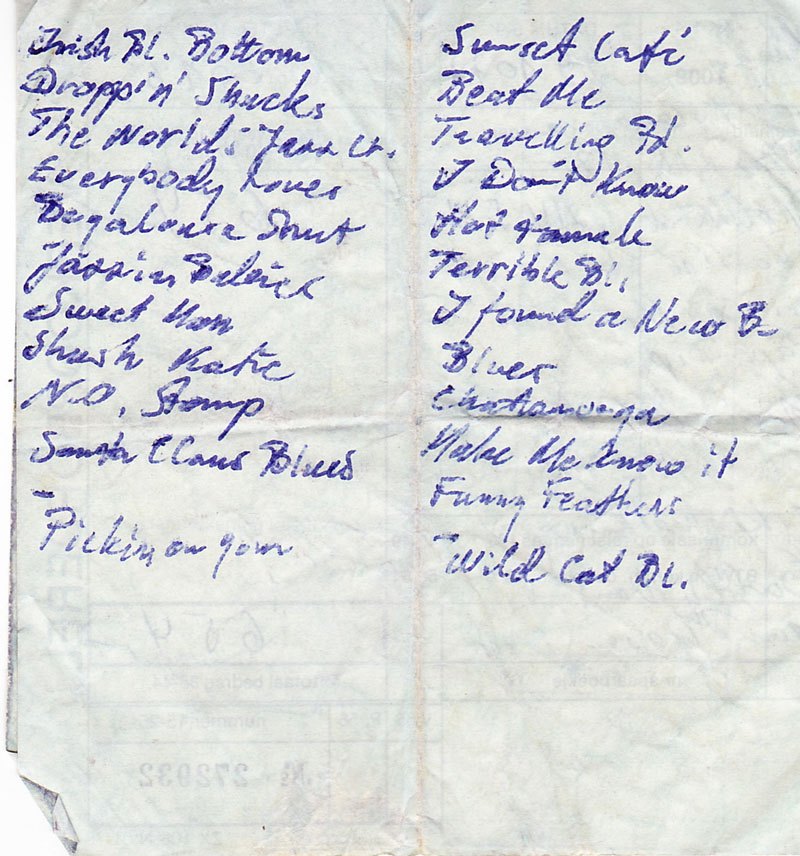 Irish Bl. Bottom
Droppin' Shucks
The World's Jazz Cr.
Everybody Loves
Bogalousa Strut
Jazzin Babies
Sweet Mom
Shush Katie
N.O. Stomp
Santa Claus Blues
- Pickin on your
Sunset Café
Beat Me
Travelling Bl.
I Don't Know
Hot Tamale
Terrible Bl.
I found a New B
Blues
Chattanooga
Make Me Know it
Funny Feathers
- Wild Cat Bl.
totaal bedrag
nummer
272932